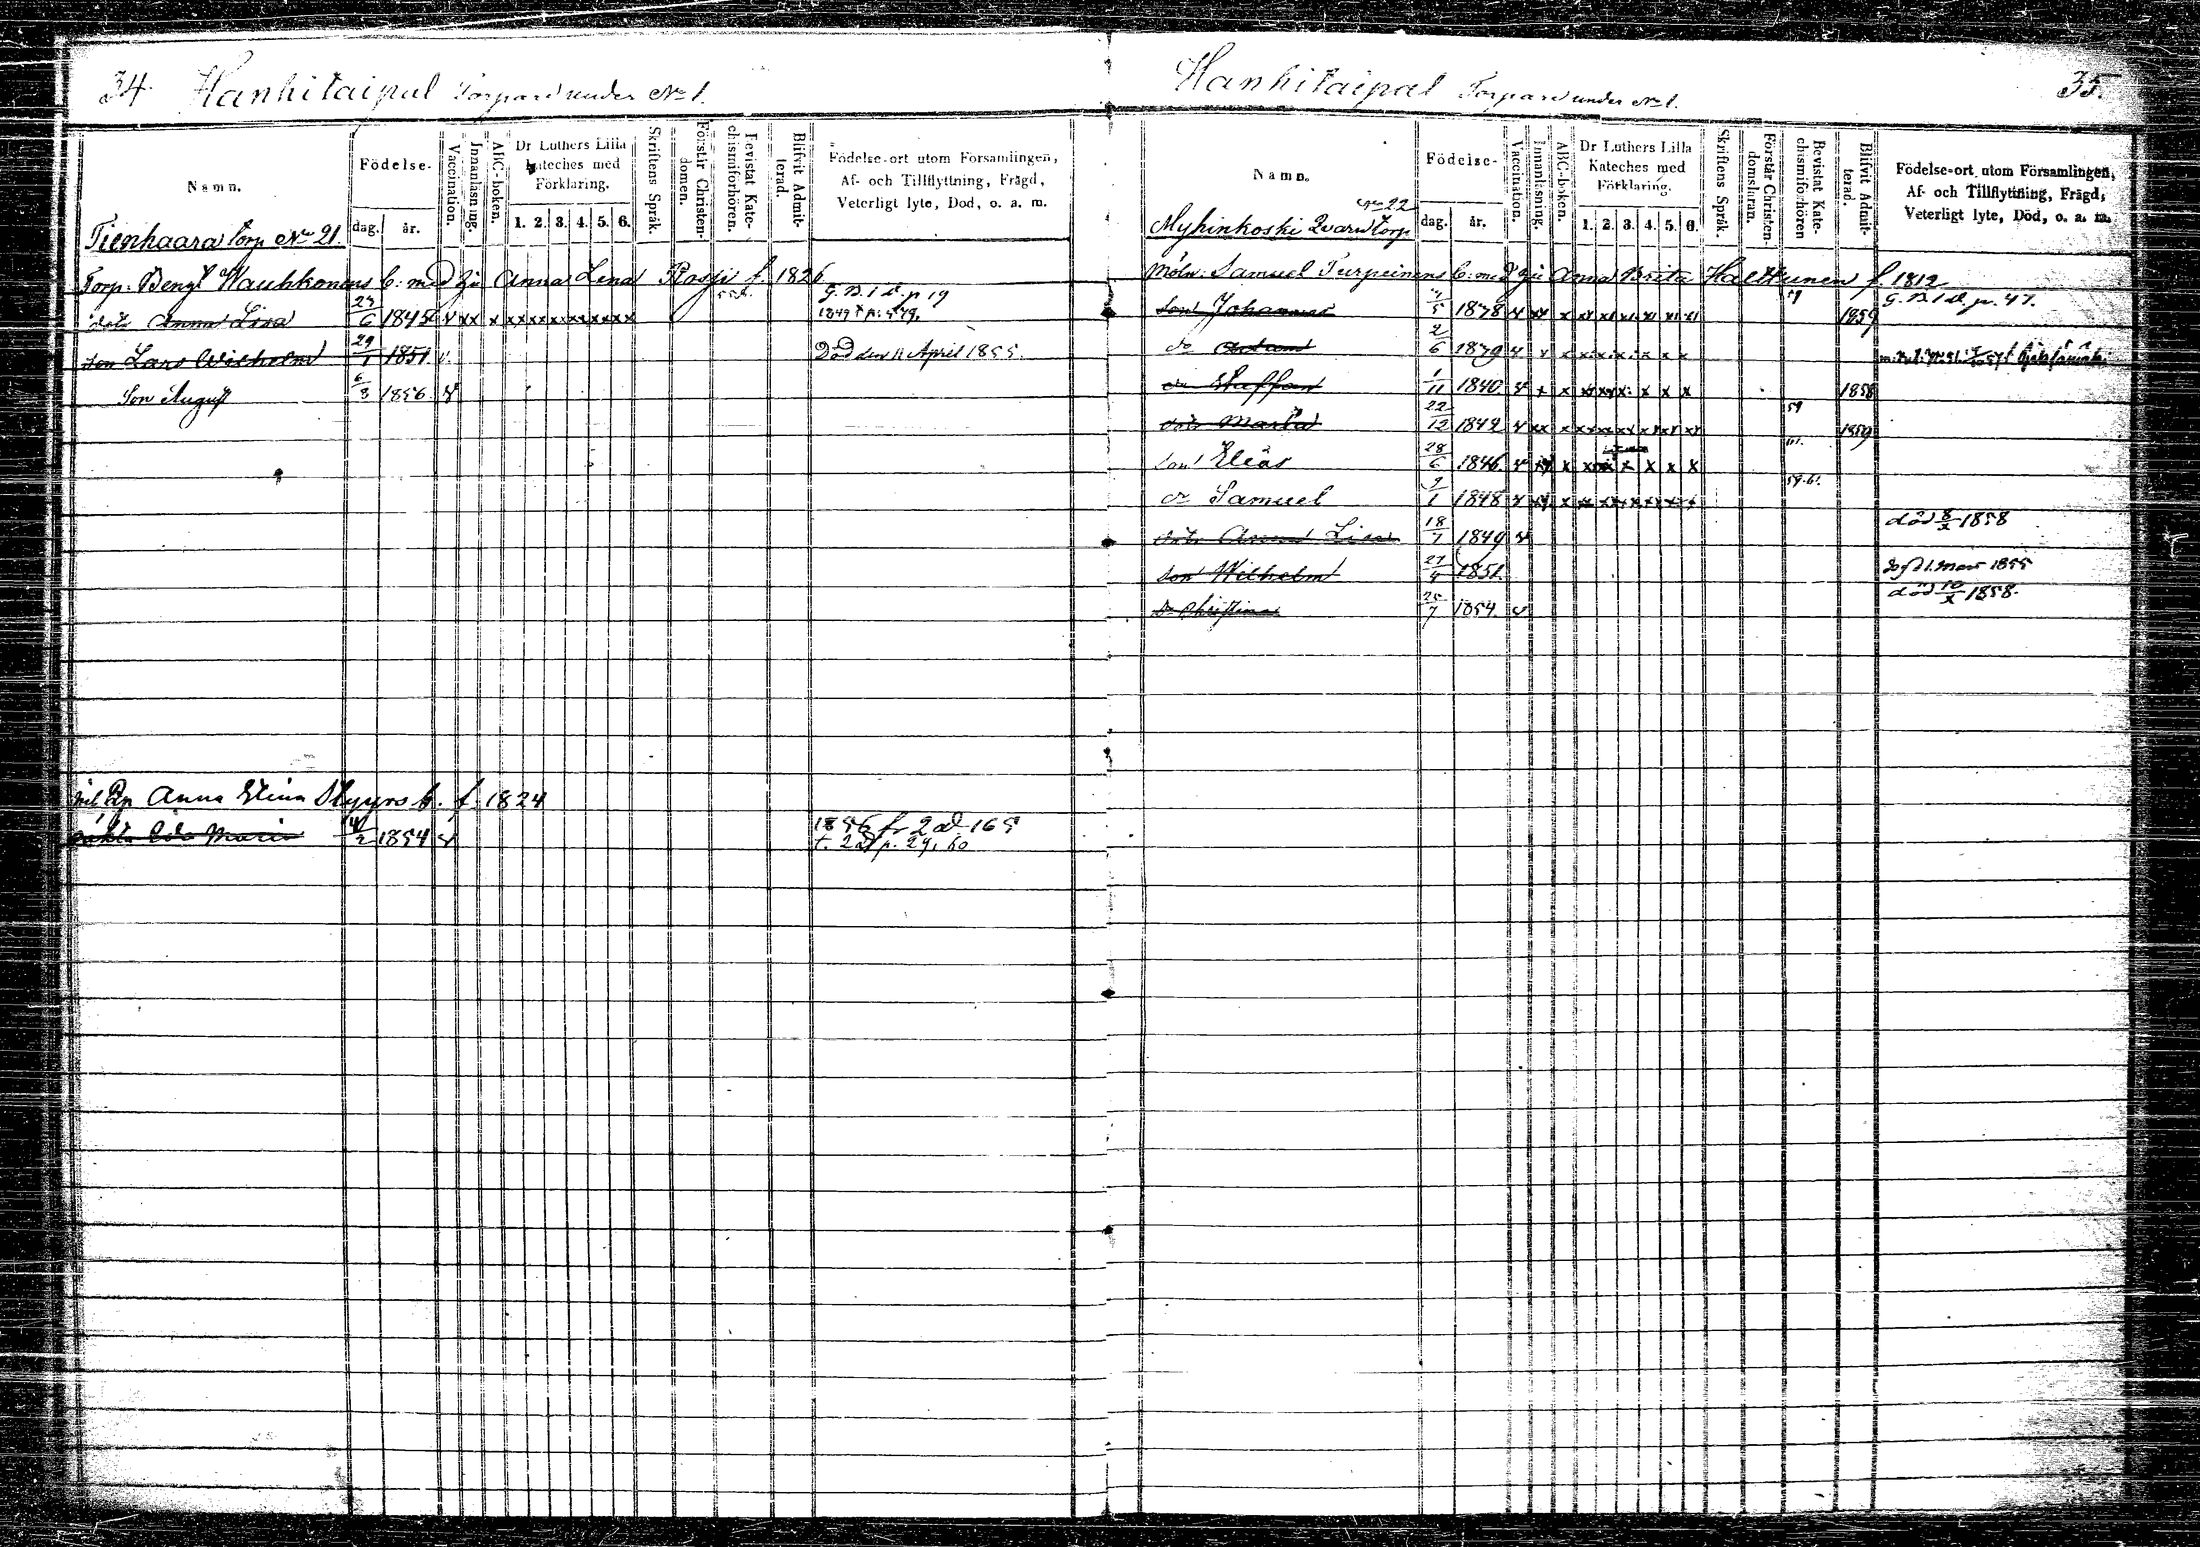 34. Hanhitaipal Torpare under No 1.
Namn.
Födelse-
dag. år.
Vaccination.
Innanläsning.
ABC-boken.
Dr Luthers Lilla Kateches med Förklaring.
1. 2. 3. 4. 5. 6.
Skriftens Språk.
Förstår Christendomen.
Bevistat Katechismiförhören.
Blifvit Admitterad.
Födelse-ort utom Församlingen,
Af- och Tillflyttning, Frägd,
Veterligt lyte, Död, o. a. m.
Tienhaara torp No 21.
Torp. Bengt Wauhkonens b: med h. Anna Lena Rossi f. 1826
dotr Anna Lisa 6 1845 v xx x G.B. 1 D. p 19
son Lars Wilhelm 29/1 1851 v. Död den 11 April 1855.
Son August 6/3 1856. v
Anna Elina b. f. 1824
Maria 1854 v 1856 fr 2 ad 165
t. 2 p. 29, 60
Hanhitaipal Torpare under No 1. 35.
Namn.
Födelse-
dag. år.
Vaccination.
Innanläsning.
ABC-boken.
Dr Luthers Lilla Kateches med Förklaring.
1. 2. 3. 4. 5. 6.
Skriftens Språk.
Förstår Christendomsläran.
Bevistat Katechismiförhören
Blifvit Admitterad.
Födelse-ort utom Församlingen,
Af- och Tillflyttning, Frägd,
Veterligt lyte, Död, o. a. m.
No 22
Myhinkoski Qvarn torp
Möln. Samuel Turpeinens b: med h. Anna Brita Halttunen f. 1812
son Johannes 5 1838 v 59 1859 G.B. 1 D. p. 47.
do 2/6 1839 v
do Staffan 1/11 1840. v x x 1858
dotr Maria 22/12 1842 v xx x 59 1859
son Elias 28/6 1846. v x 61.
do Samuel 9/1 1848 v x 59-61.
dotr Anna Lisa 18/7 1849 v död 8/X 1858
son Wilhelm 27/4 1851. 1855
Dr Christina 25/7 1854. v död 10/X 1858.